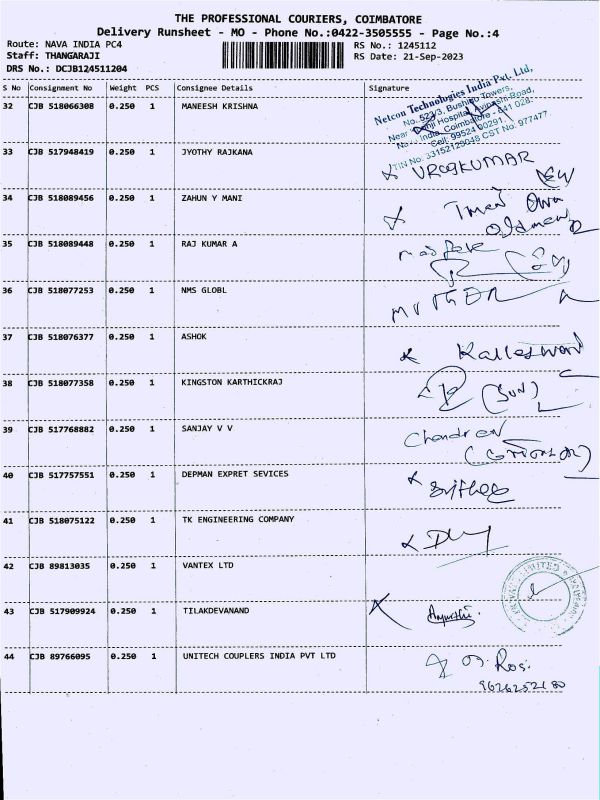 THE PROFESSIONAL COURIERS, COIMBATORE
Delivery Runsheet - MO - Phone No.:0422-3505555 - Page No.:4
Route: NAVA INDIA PC4 RS No.: 1245112
Staff: THANGARAJI RS Date: 21-Sep-2023
DRS No.: DCJB124511204
S No Consignment No Weight PCS Consignee Details Signature
32 CJB 518066308 0.250 1 MANEESH KRISHNA
Netcon Technologies India Pvt. Ltd,
No. 523/3, Towers,
Near Hospital, Avinashi Road,
India, Coimbatore - 641 028.
Cell: 99524 00291.
TIN No. 33152129048 CST No. 977477
33 CJB 517948419 0.250 1 JYOTHY RAJKANA
34 CJB 518089456 0.250 1 ZAHUN Y MANI
35 CJB 518089448 0.250 1 RAJ KUMAR A
36 CJB 518077253 0.250 1 NMS GLOBL
37 CJB 518076377 0.250 1 ASHOK
38 CJB 518077358 0.250 1 KINGSTON KARTHICKRAJ (SUN)
39 CJB 517768882 0.250 1 SANJAY V V
40 CJB 517757551 0.250 1 DEPMAN EXPRET SEVICES
41 CJB 518075122 0.250 1 TK ENGINEERING COMPANY
42 CJB 89813035 0.250 1 VANTEX LTD
43 CJB 517909924 0.250 1 TILAKDEVANAND
44 CJB 89766095 0.250 1 UNITECH COUPLERS INDIA PVT LTD
9626252180